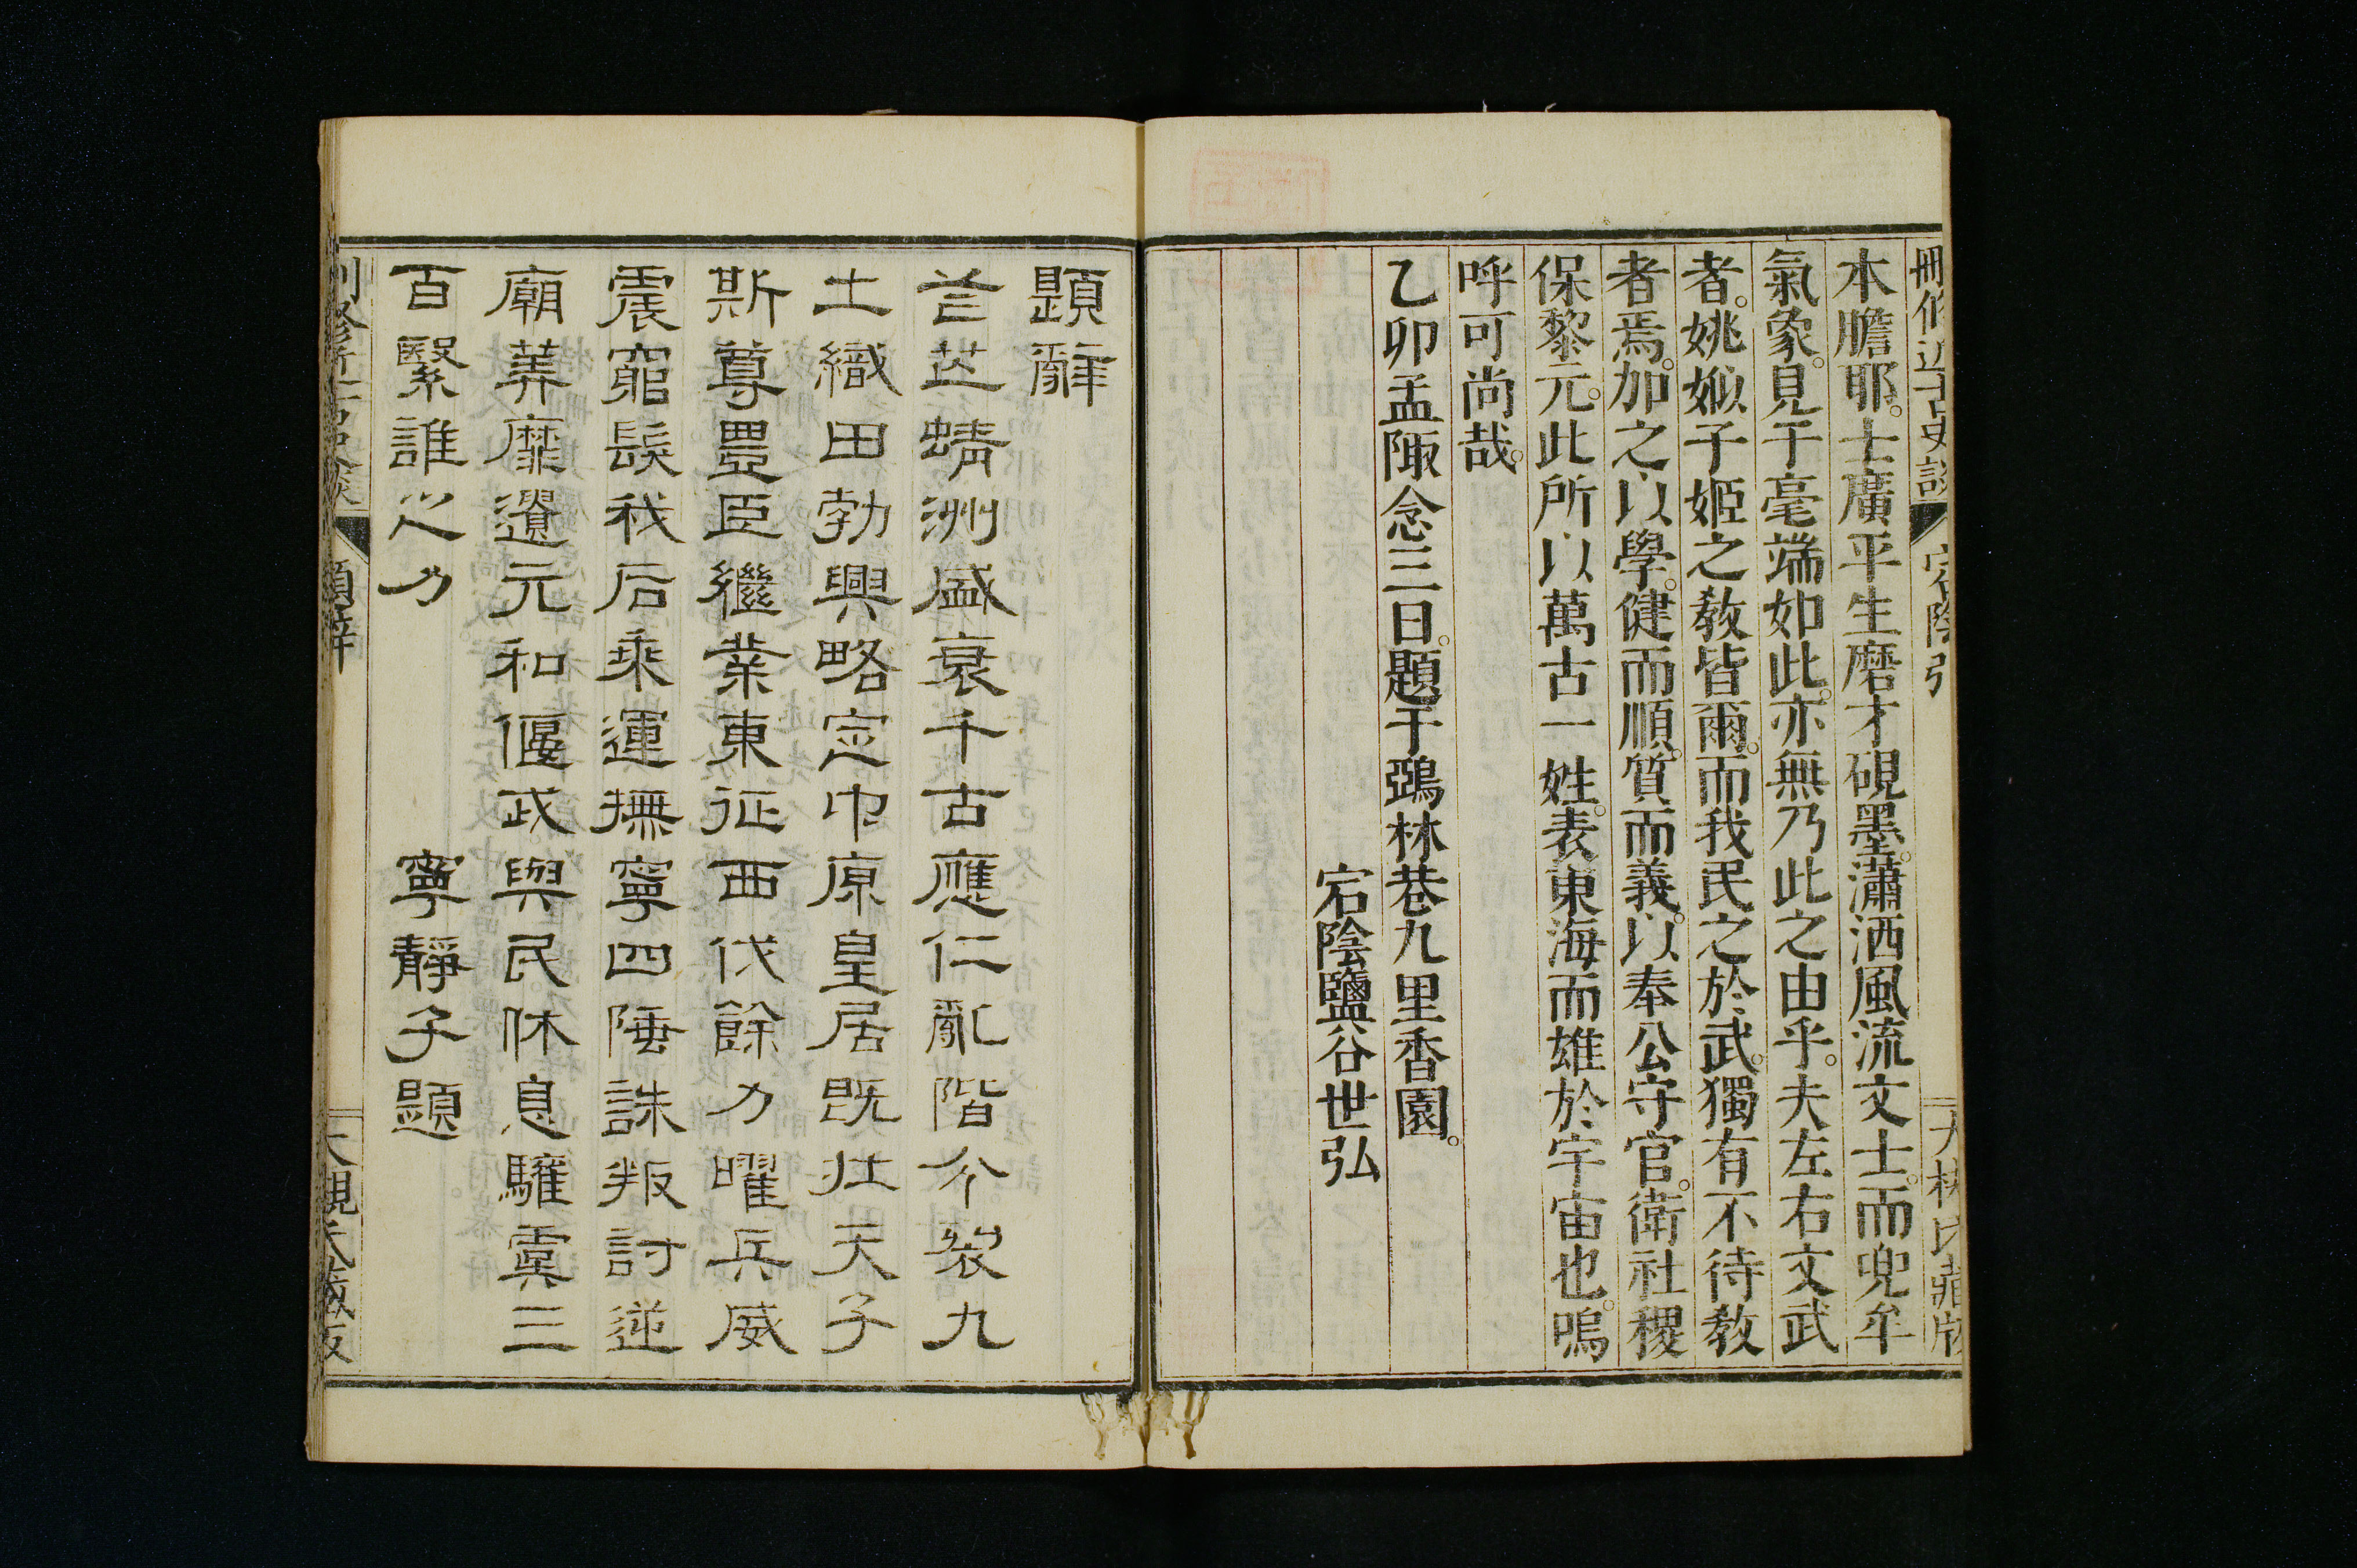 刪修近古史談 宕陰引 大槻氏藏版
本膽耶。士廣平生磨才硯墨。瀟洒風流文士。而兜牟
氣象。見于毫端如此。亦無乃此之由乎。夫左右文武
者。姚姒子姬之敎皆爾。而我民之於武。獨有不待敎
者焉。加之以學。健而順。質而義。以奉公守官。衛社稷
保黎元。此所以萬古一姓。表東海而雄於宇宙也。嗚
呼可尚哉。
乙卯孟陬念三日。題于鵶林巷九里香園。
宕陰鹽谷世弘
題辭
芒芒蜻洲盛衰千古應仁亂階分裂九
土織田勃興略定中原皇居既壯天子
斯尊豐臣繼業東征西伐餘力曜兵威
震窮髮我后乘運撫寧四陲誅叛討逆
廟算靡遺元和偃武與民休息驩虞三
百緊誰之力
寧靜子題
刪修近古史談 題辭 大槻氏藏版